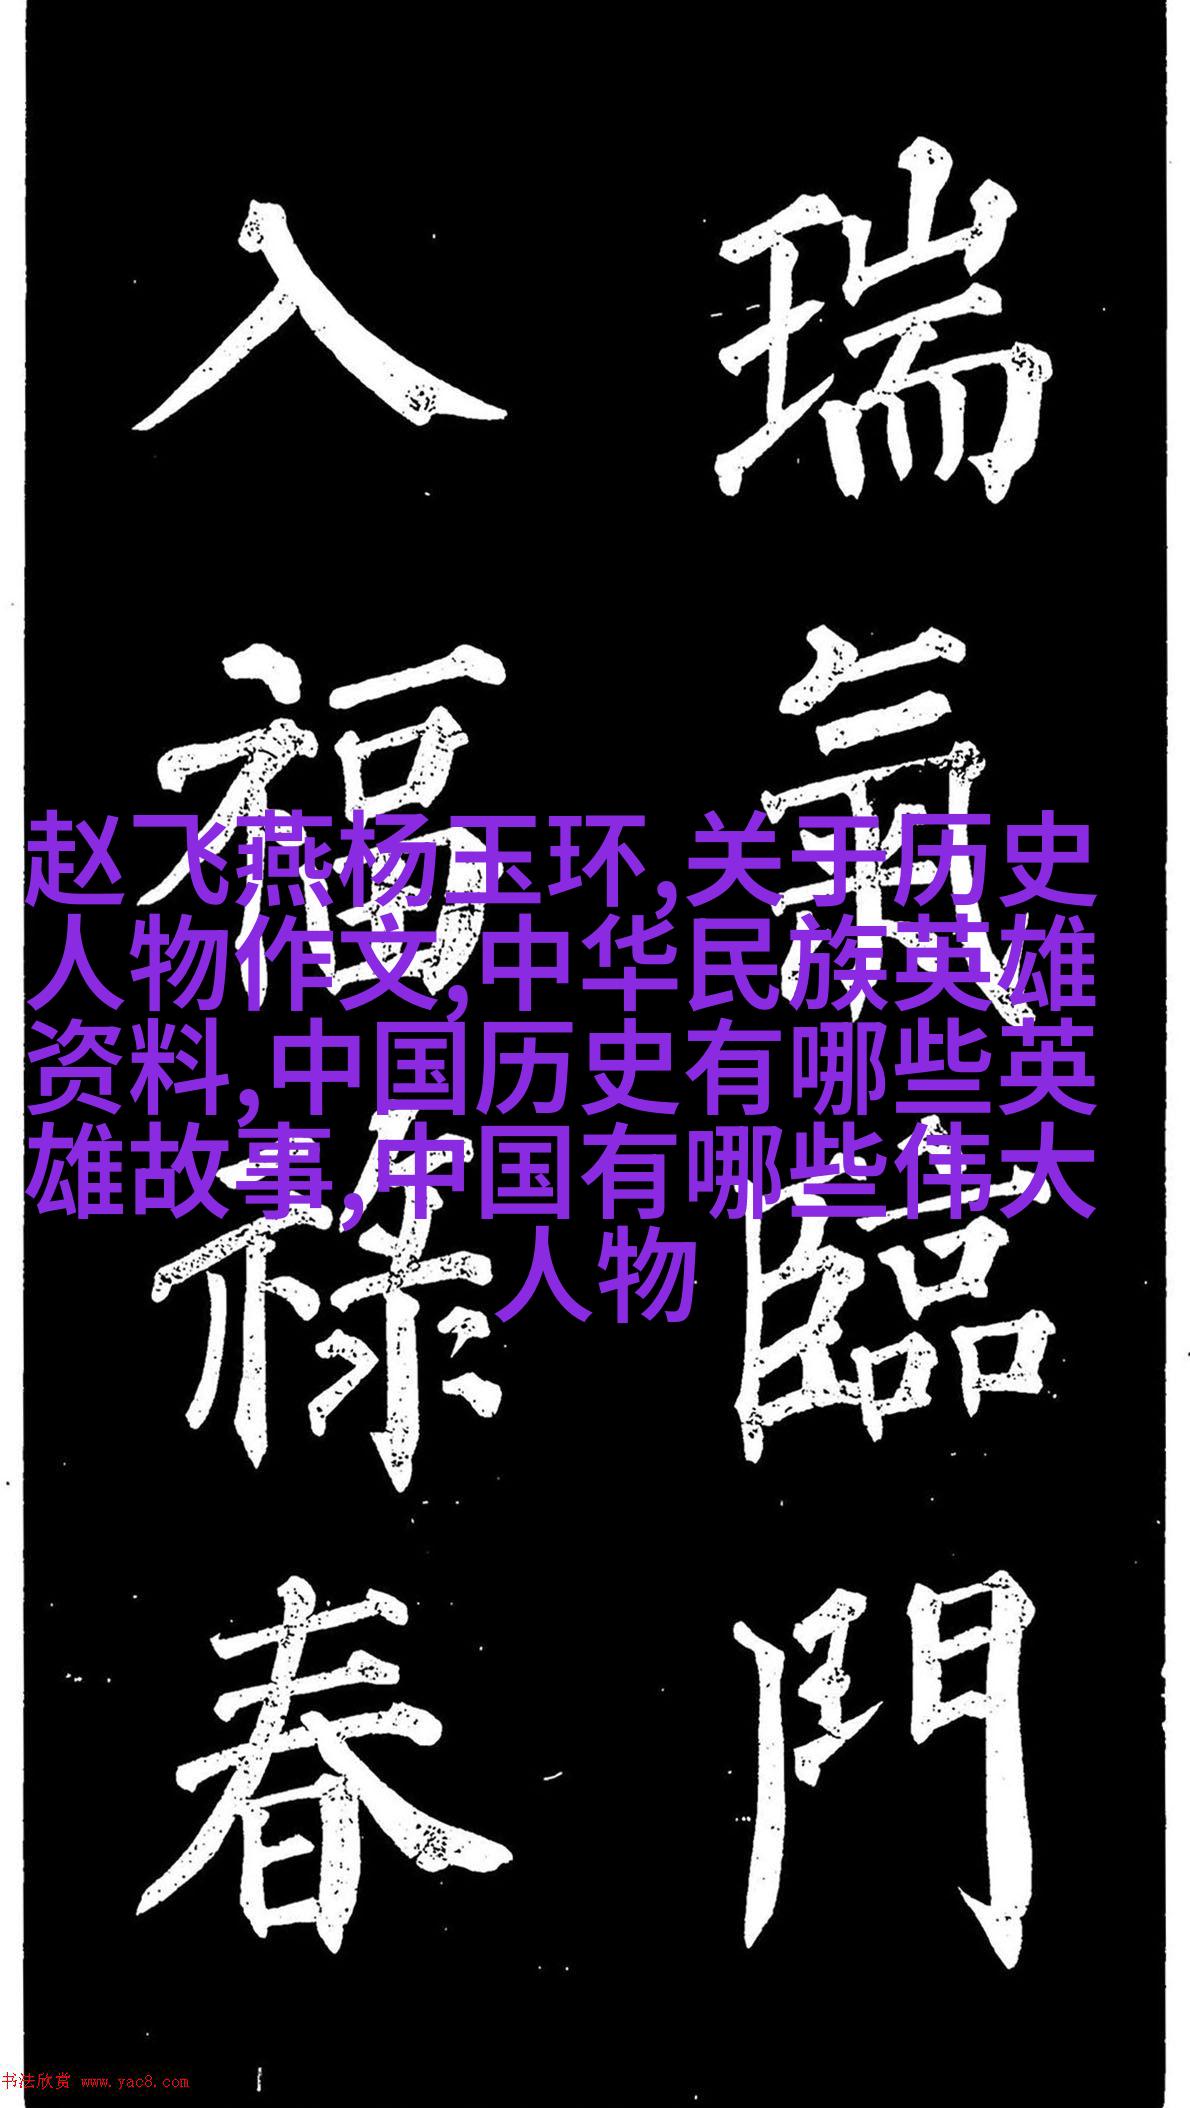 瑞氣臨門
入福祿春
赵飞燕杨玉环,关于历史
人物作文,中华民族英雄
资料,中国历史有哪些英
雄故事,中国有哪些伟大
人物
书法欣赏 www.yac8.com